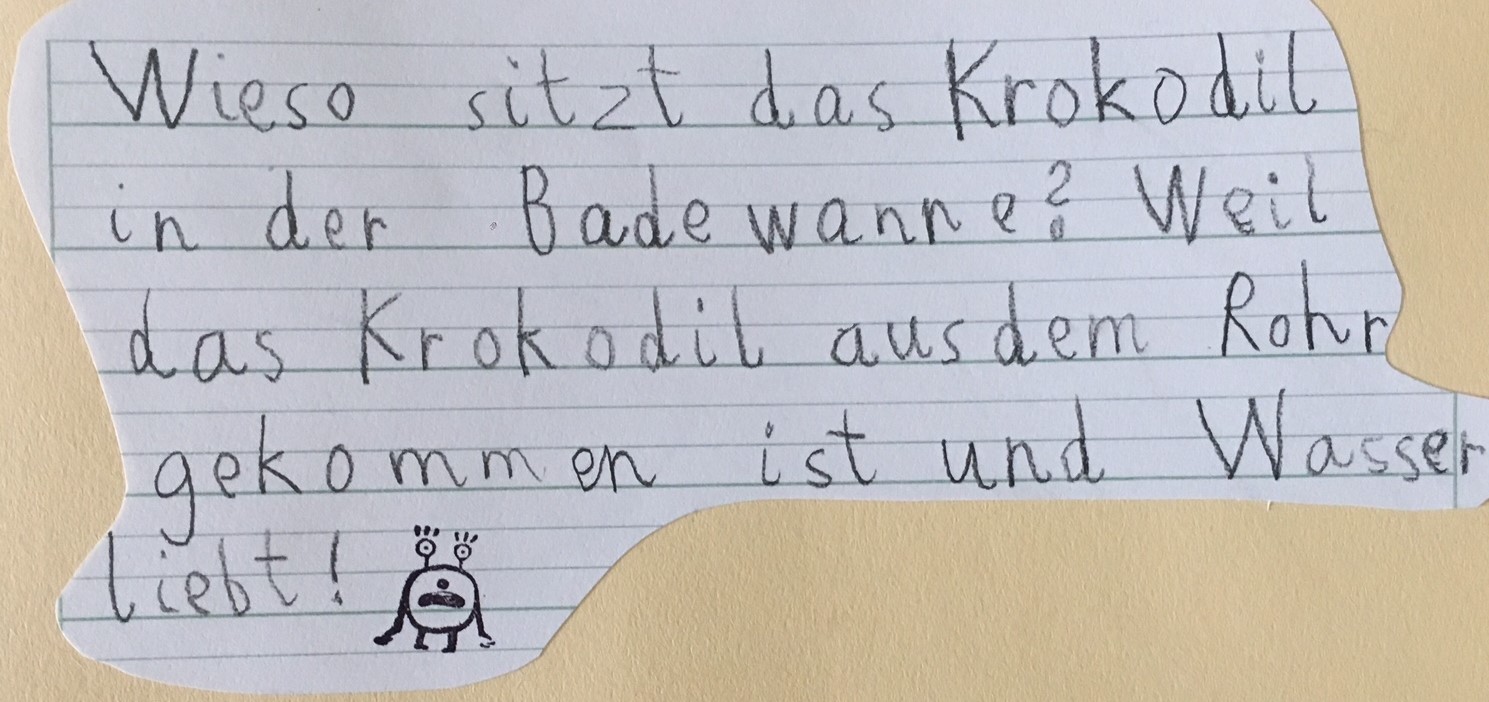 Wieso sitzt das Krokodil
in der Badewanne? Weil
das Krokodil aus dem Rohr
gekommen ist und Wasser
liebt!